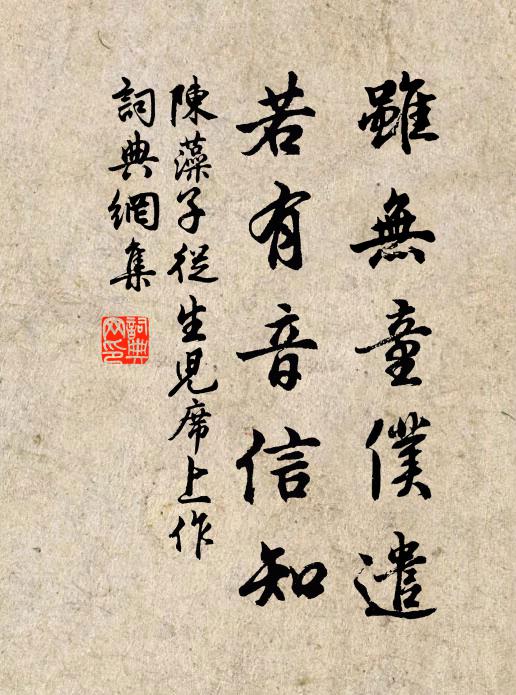 雖無童僕遣
若有音信知
陳藻子從生児席上作
詞典網集
詞典網印